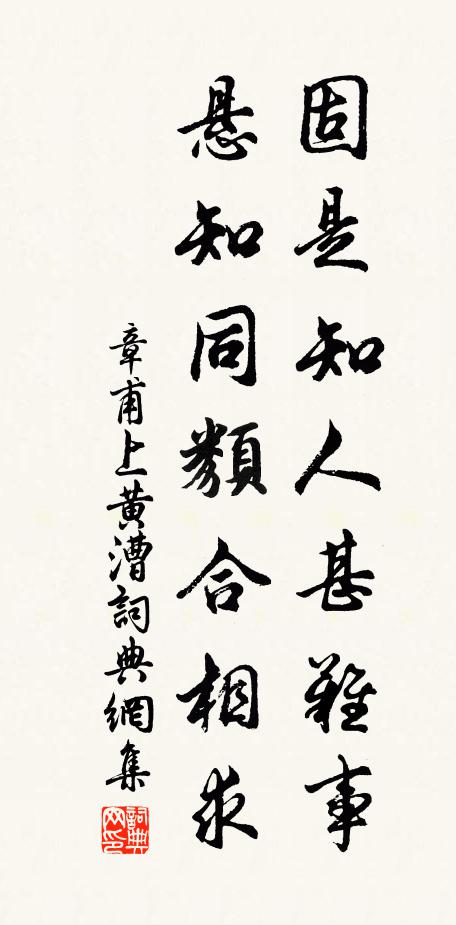 固是知人甚難事
悬知同類合相求
章甫上黄漕詞典網集
詞典网印